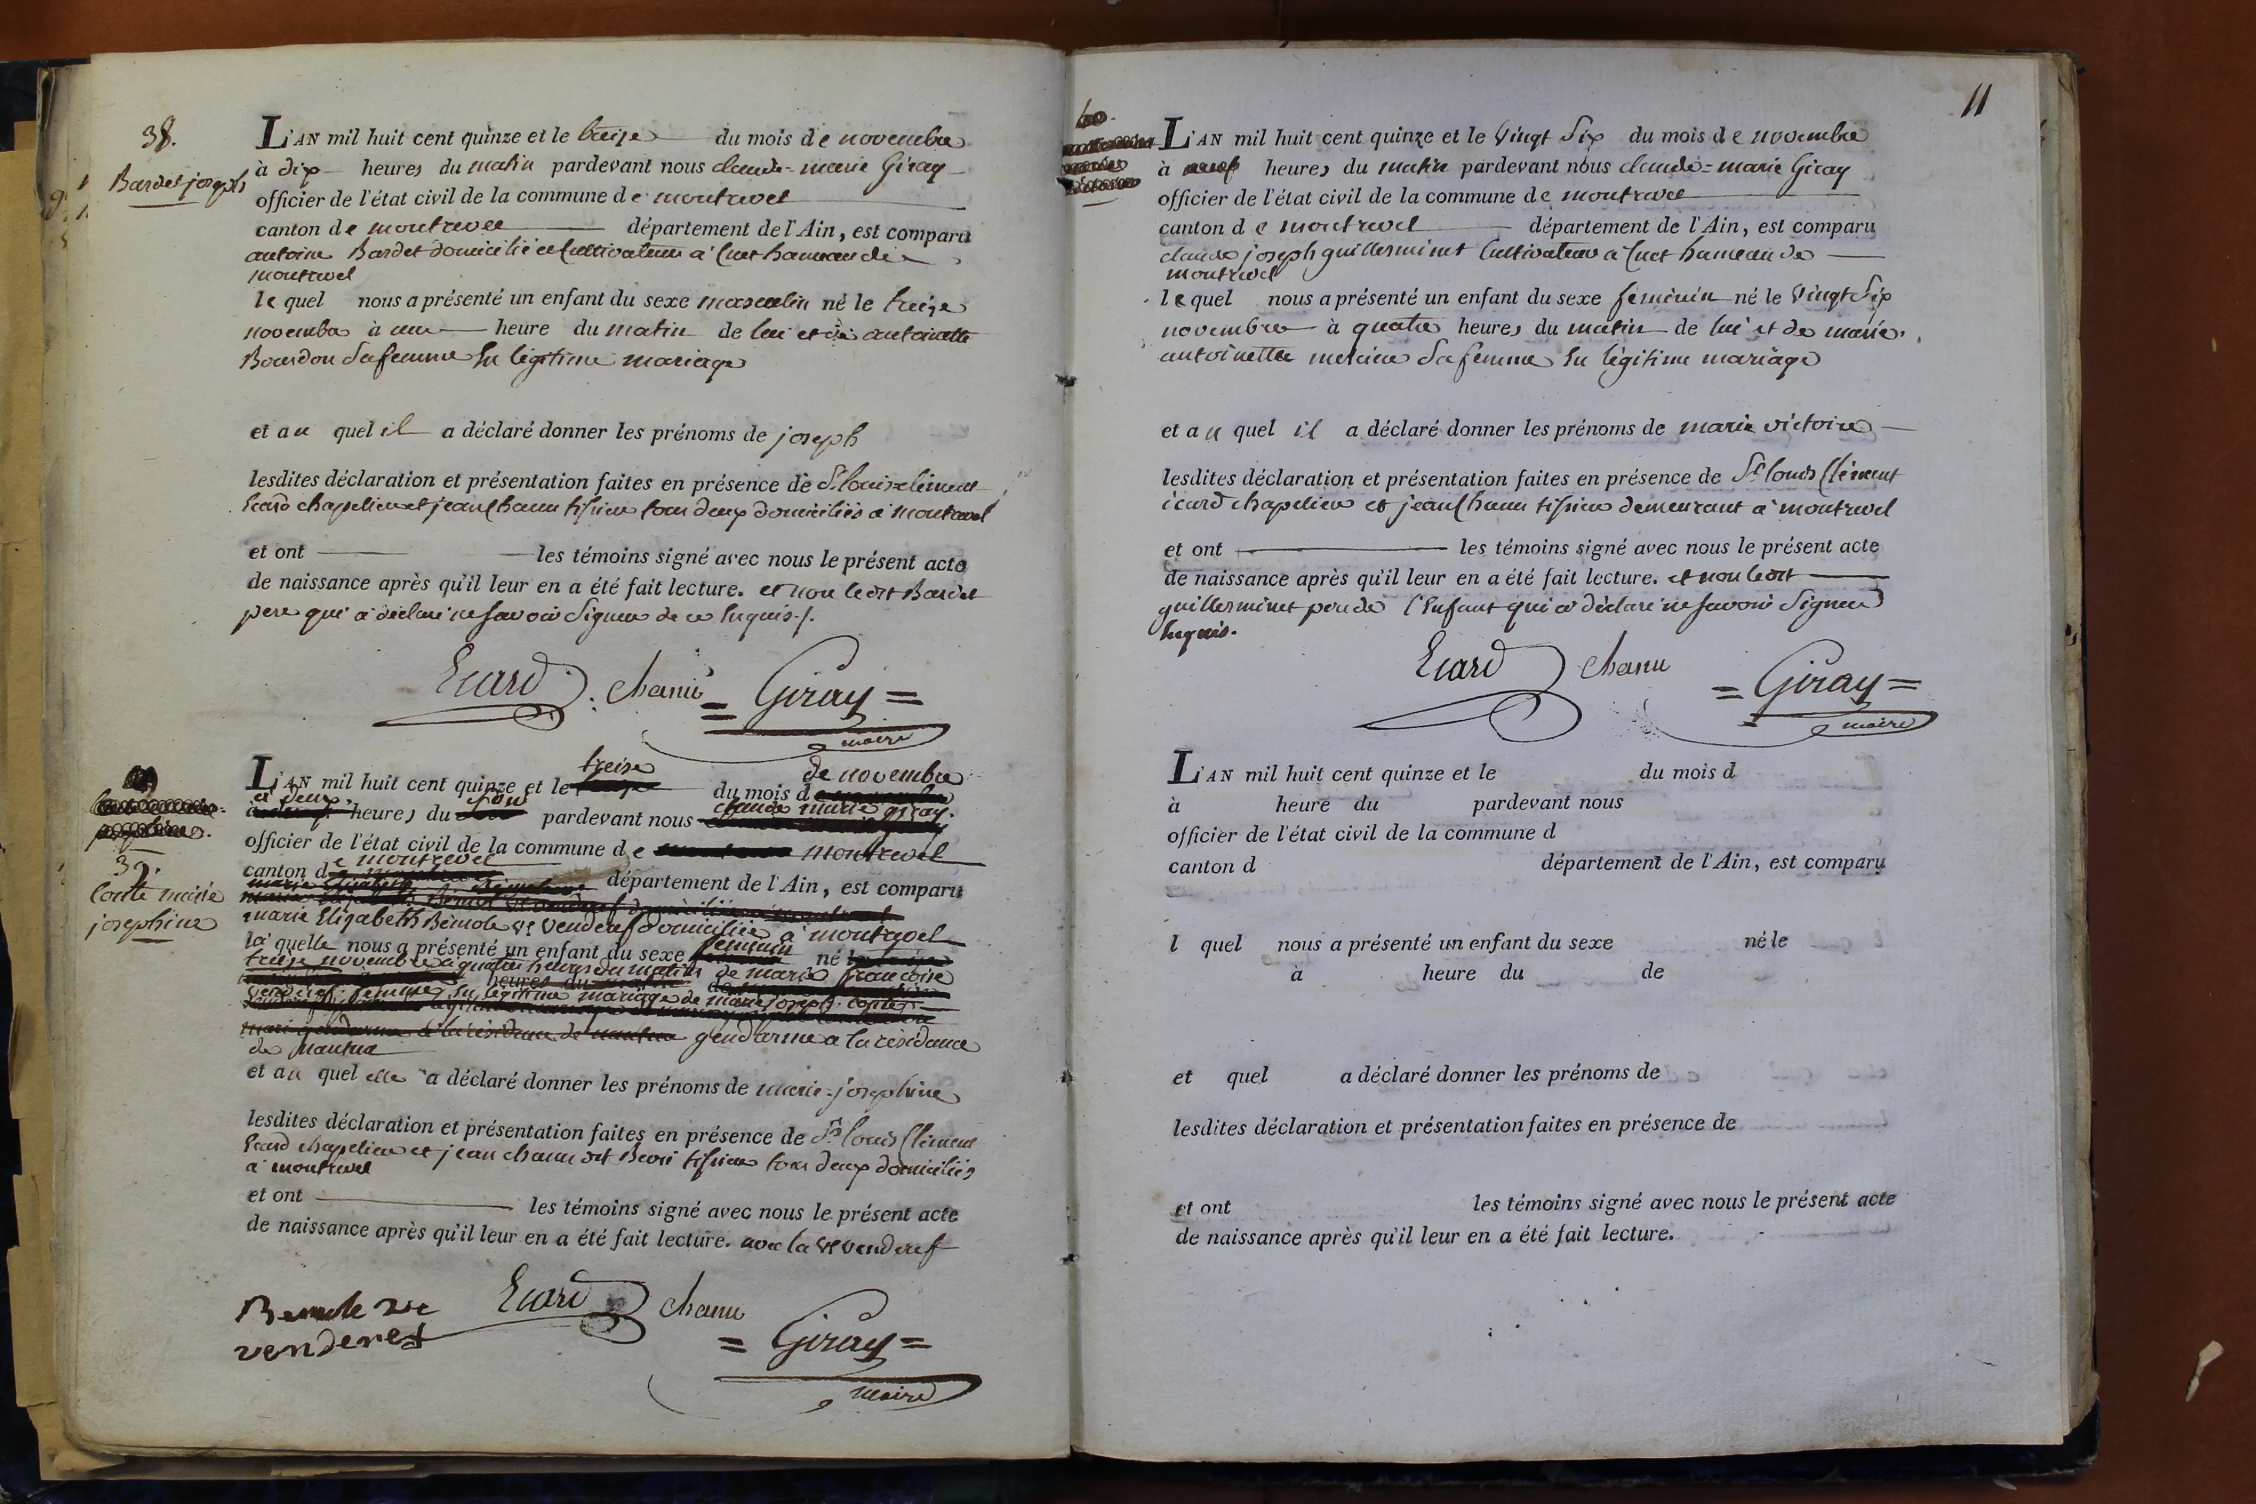 38.
Bardet joseph
L'AN mil huit cent quinze et le treize du mois de novembre
à dix heures du matin pardevant nous claude-marie Giray
officier de l'état civil de la commune de montrevel
canton de montrevel département de l'Ain, est comparu
antoine Bardet domicilié et Cultivateur à Cuet hameau de
montrevel
le quel nous a présenté un enfant du sexe masculin né le treize
novembre à une heure du matin de lui et de antoinette
Bourdon Sa femme En légitime mariage
et au quel il a déclaré donner les prénoms de joseph
lesdites déclaration et présentation faites en présence de Sr. louis clément
Ecard chapelier et jean Chanu tissier tous deux domiciliés à montrevel
et ont les témoins signé avec nous le présent acte
de naissance après qu'il leur en a été fait lecture. et non ledit Bardet
pere qui a déclaré ne savoir Signer de ce Enquis./.
Ecard Chanu = Giray =
maire
39.
Conte marie
josephine
L'AN mil huit cent quinze et le treize du mois d de novembre
à deux heures du soir pardevant nous claude marie giray.
officier de l'état civil de la commune de montrevel
canton de montrevel département de l'Ain, est comparu
marie Elizabeth Bémole ve venderef domiciliée à montrevel
la quelle nous a présenté un enfant du sexe feminin né
treise novembre à quatre heures du matin de marie françoise
venderef femme En légitime mariage de marie joseph conte
gendarme a la résidance
de nantua
et au quel elle a déclaré donner les prénoms de marie-josephine
lesdites déclaration et présentation faites en présence de Sr. louis Clément
Ecard chapelier et jean chanu dit tissier tous deux domiciliés
à montrevel
et ont les témoins signé avec nous le présent acte
de naissance après qu'il leur en a été fait lecture. avec la ve venderef
Bemole ve
venderef
Ecard Chanu
= Giray =
maire
11
40.
L'AN mil huit cent quinze et le Vingt Six du mois de novembre
à neuf heures du matin pardevant nous claude=marie Giray
officier de l'état civil de la commune de montrevel
canton de montrevel département de l'Ain, est comparu
claude joseph guillerminet Cultivateur à Cuet hameau de
montrevel
le quel nous a présenté un enfant du sexe féminin né le Vingt Six
novembre à quatre heures du matin de lui et de marie
antoinette mercier Sa femme En légitime mariage
et au quel il a déclaré donner les prénoms de marie victoire
lesdites déclaration et présentation faites en présence de Sr. louis Clément
écard chapelier et jean Chanu tissier demeurant à montrevel
et ont les témoins signé avec nous le présent acte
de naissance après qu'il leur en a été fait lecture. et non ledit
guillerminet pere de l'Enfant qui a déclaré ne savoir Signer
Enquis.
Ecard Chanu = Giray =
maire
L'AN mil huit cent quinze et le du mois d
à heure du pardevant nous
officier de l'état civil de la commune d
canton d département de l'Ain, est comparu
l quel nous a présenté un enfant du sexe né le
à heure du de
et quel a déclaré donner les prénoms de
lesdites déclaration et présentation faites en présence de
et ont les témoins signé avec nous le présent acte
de naissance après qu'il leur en a été fait lecture.